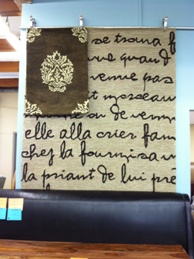 se trouva f
vente quand
venue pas
et morceau
ou de verm
elle alla crier fam
chez la fourmi sa v
la priant de lui prê